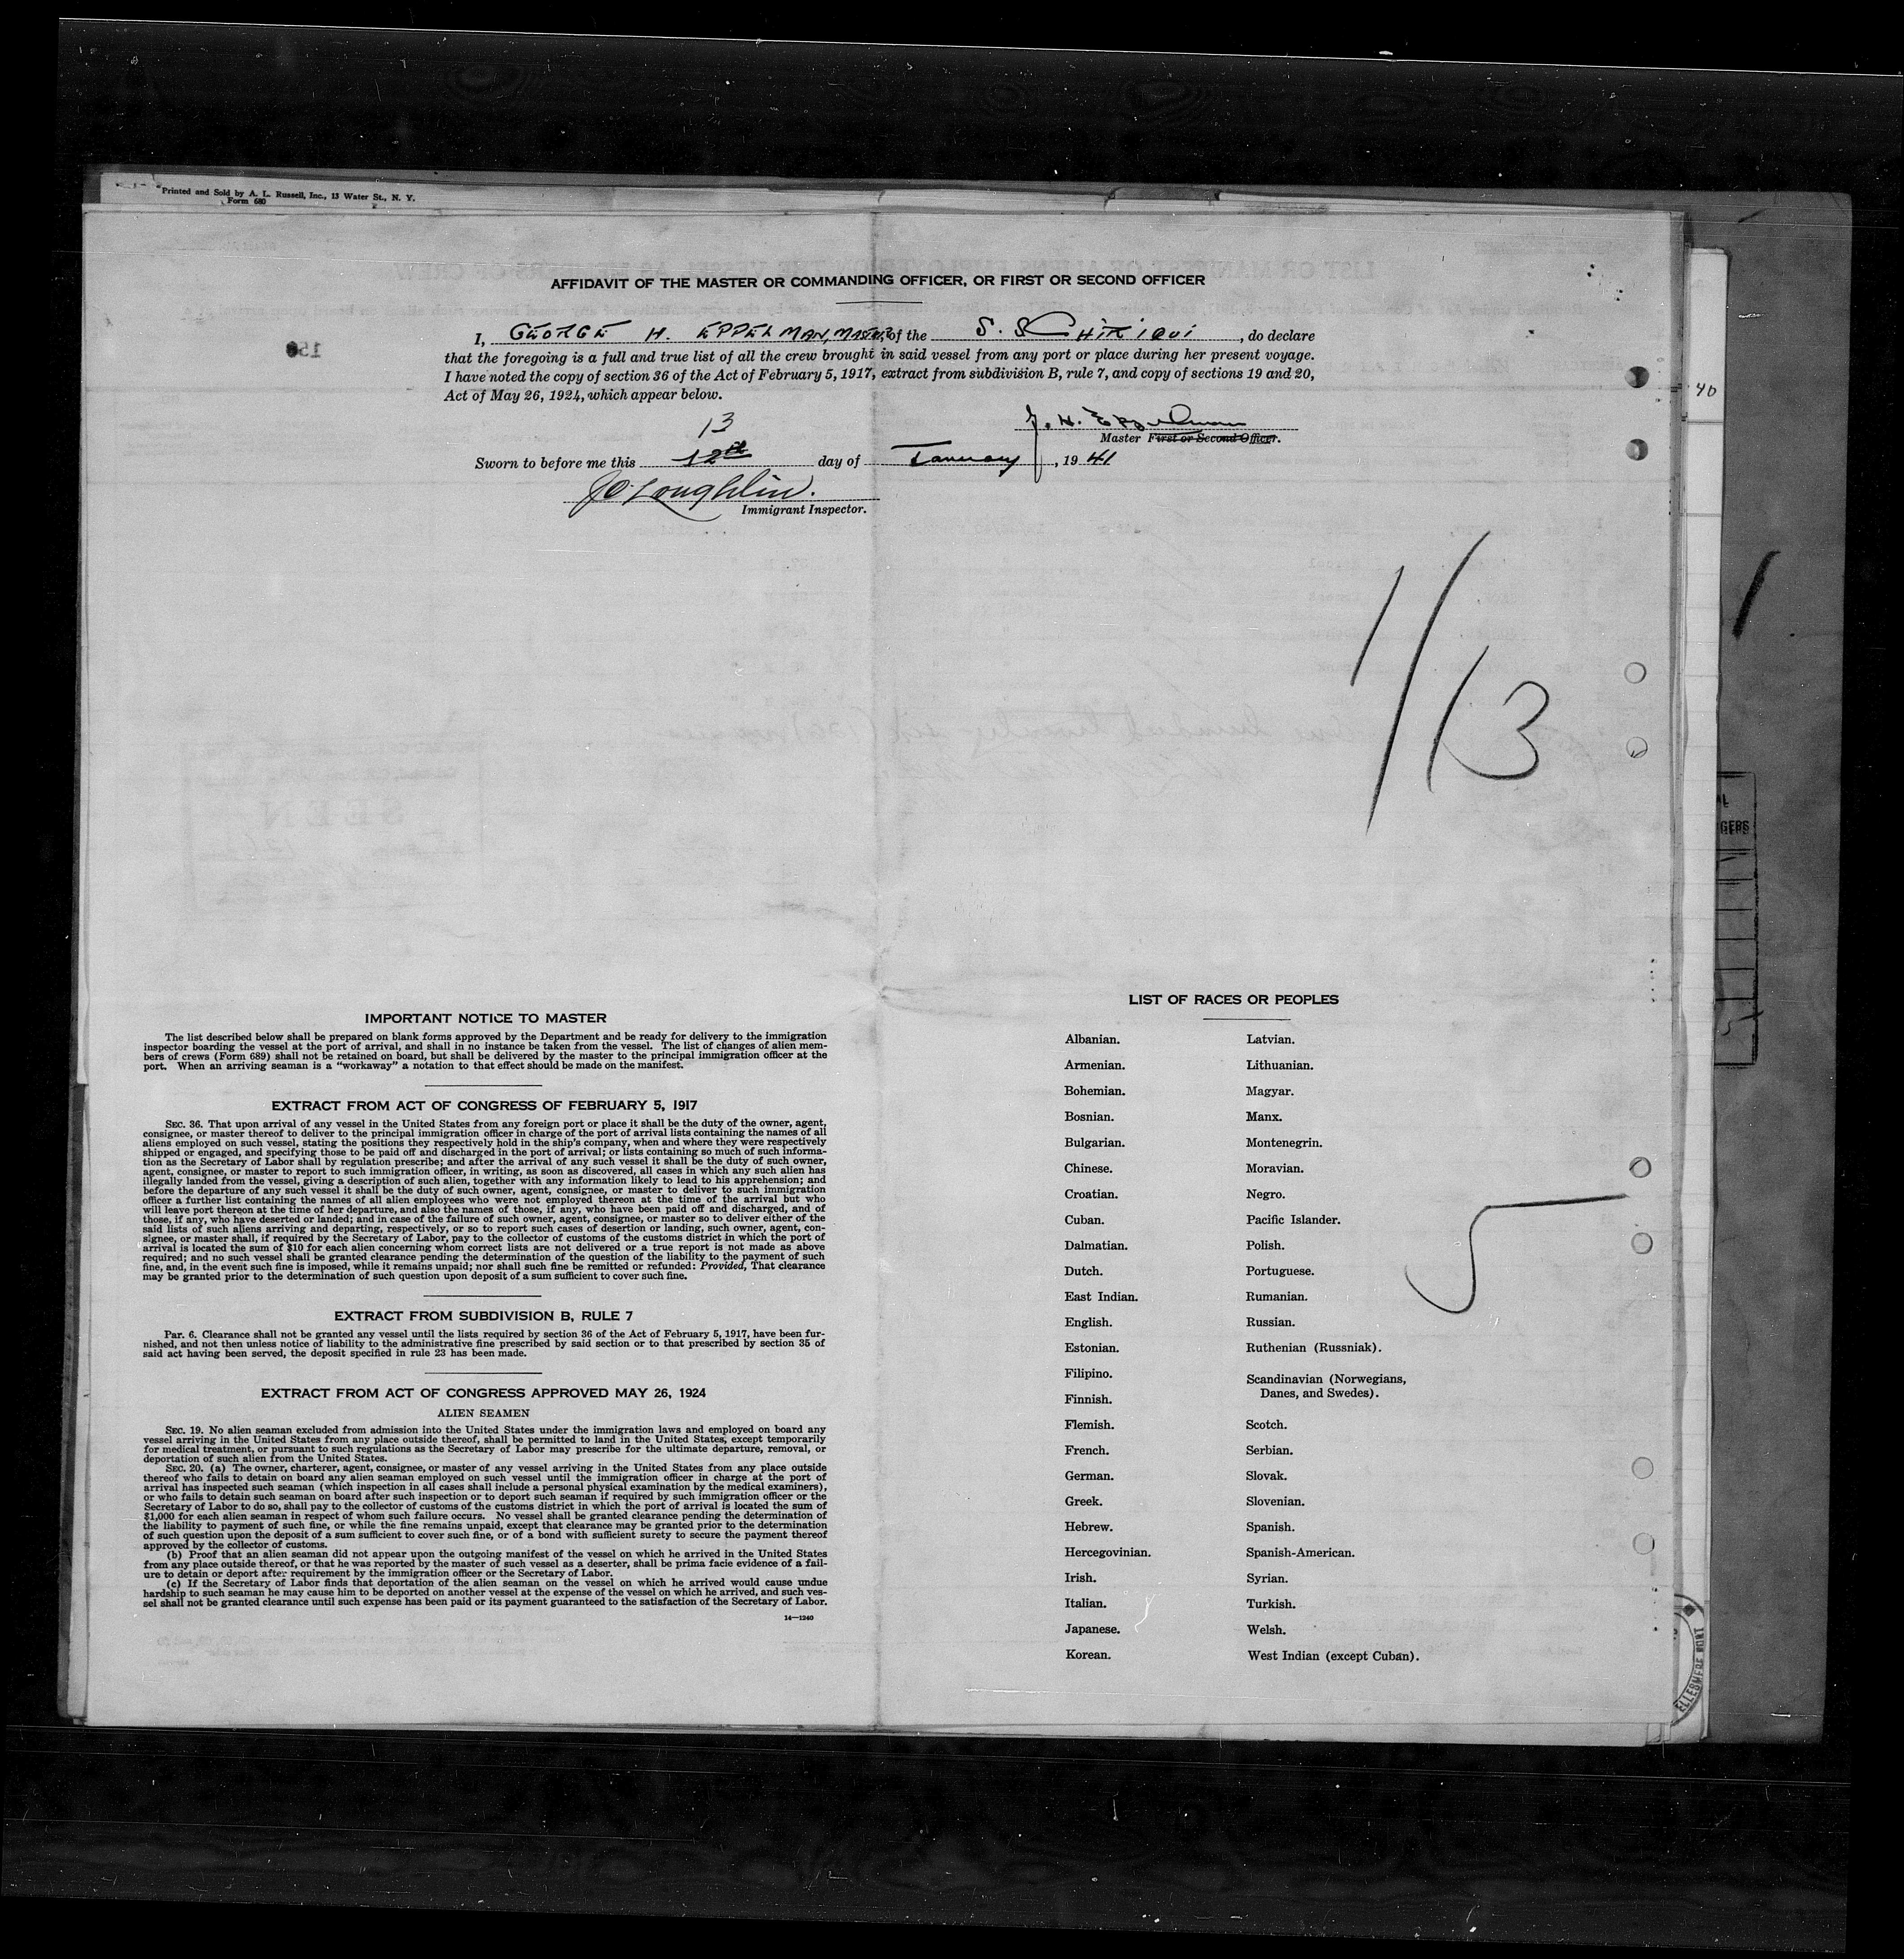 Printed and Sold by A. L. Russell, Inc., 13 Water St., N. Y.
Form 680
AFFIDAVIT OF THE MASTER OR COMMANDING OFFICER, OR FIRST OR SECOND OFFICER
I, GEORGE H. EPPELMAN, MASTER, of the S. S CHIRIQUI, do declare
that the foregoing is a full and true list of all the crew brought in said vessel from any port or place during her present voyage.
I have noted the copy of section 36 of the Act of February 5, 1917, extract from subdivision B, rule 7, and copy of sections 19 and 20,
Act of May 26, 1924, which appear below.
40
13
G. H. Eppelman
Master First or Second Officer.
Sworn to before me this 12th day of January, 1941
JO'Loughlin.
Immigrant Inspector.
1/13
LIST OF RACES OR PEOPLES
IMPORTANT NOTICE TO MASTER
The list described below shall be prepared on blank forms approved by the Department and be ready for delivery to the immigration
inspector boarding the vessel at the port of arrival, and shall in no instance be taken from the vessel. The list of changes of alien mem-
bers of crews (Form 689) shall not be retained on board, but shall be delivered by the master to the principal immigration officer at the
port. When an arriving seaman is a "workaway" a notation to that effect should be made on the manifest.
EXTRACT FROM ACT OF CONGRESS OF FEBRUARY 5, 1917
SEC. 36. That upon arrival of any vessel in the United States from any foreign port or place it shall be the duty of the owner, agent,
consignee, or master thereof to deliver to the principal immigration officer in charge of the port of arrival lists containing the names of all
aliens employed on such vessel, stating the positions they respectively hold in the ship's company, when and where they were respectively
shipped or engaged, and specifying those to be paid off and discharged in the port of arrival; or lists containing so much of such informa-
tion as the Secretary of Labor shall by regulation prescribe; and after the arrival of any such vessel it shall be the duty of such owner,
agent, consignee, or master to report to such immigration officer, in writing, as soon as discovered, all cases in which any such alien has
illegally landed from the vessel, giving a description of such alien, together with any information likely to lead to his apprehension; and
before the departure of any such vessel it shall be the duty of such owner, agent, consignee, or master to deliver to such immigration
officer a further list containing the names of all alien employees who were not employed thereon at the time of the arrival but who
will leave port thereon at the time of her departure, and also the names of those, if any, who have been paid off and discharged, and of
those, if any, who have deserted or landed; and in case of the failure of such owner, agent, consignee, or master so to deliver either of the
said lists of such aliens arriving and departing, respectively, or so to report such cases of desertion or landing, such owner, agent, con-
signee, or master shall, if required by the Secretary of Labor, pay to the collector of customs of the customs district in which the port of
arrival is located the sum of $10 for each alien concerning whom correct lists are not delivered or a true report is not made as above
required; and no such vessel shall be granted clearance pending the determination of the question of the liability to the payment of such
fine, and, in the event such fine is imposed, while it remains unpaid; nor shall such fine be remitted or refunded: Provided, That clearance
may be granted prior to the determination of such question upon deposit of a sum sufficient to cover such fine.
EXTRACT FROM SUBDIVISION B, RULE 7
Par. 6. Clearance shall not be granted any vessel until the lists required by section 36 of the Act of February 5, 1917, have been fur-
nished, and not then unless notice of liability to the administrative fine prescribed by said section or to that prescribed by section 35 of
said act having been served, the deposit specified in rule 23 has been made.
EXTRACT FROM ACT OF CONGRESS APPROVED MAY 26, 1924
ALIEN SEAMEN
SEC. 19. No alien seaman excluded from admission into the United States under the immigration laws and employed on board any
vessel arriving in the United States from any place outside thereof, shall be permitted to land in the United States, except temporarily
for medical treatment, or pursuant to such regulations as the Secretary of Labor may prescribe for the ultimate departure, removal, or
deportation of such alien from the United States.
SEC. 20. (a) The owner, charterer, agent, consignee, or master of any vessel arriving in the United States from any place outside
thereof who fails to detain on board any alien seaman employed on such vessel until the immigration officer in charge at the port of
arrival has inspected such seaman (which inspection in all cases shall include a personal physical examination by the medical examiners),
or who fails to detain such seaman on board after such inspection or to deport such seaman if required by such immigration officer or the
Secretary of Labor to do so, shall pay to the collector of customs of the customs district in which the port of arrival is located the sum of
$1,000 for each alien seaman in respect of whom such failure occurs. No vessel shall be granted clearance pending the determination of
the liability to payment of such fine, or while the fine remains unpaid, except that clearance may be granted prior to the determination
of such question upon the deposit of a sum sufficient to cover such fine, or of a bond with sufficient surety to secure the payment thereof
approved by the collector of customs.
(b) Proof that an alien seaman did not appear upon the outgoing manifest of the vessel on which he arrived in the United States
from any place outside thereof, or that he was reported by the master of such vessel as a deserter, shall be prima facie evidence of a fail-
ure to detain or deport after requirement by the immigration officer or the Secretary of Labor.
(c) If the Secretary of Labor finds that deportation of the alien seaman on the vessel on which he arrived would cause undue
hardship to such seaman he may cause him to be deported on another vessel at the expense of the vessel on which he arrived, and such ves-
sel shall not be granted clearance until such expense has been paid or its payment guaranteed to the satisfaction of the Secretary of Labor.
14—1240
Albanian.
Armenian.
Bohemian.
Bosnian.
Bulgarian.
Chinese.
Croatian.
Cuban.
Dalmatian.
Dutch.
East Indian.
English.
Estonian.
Filipino.
Finnish.
Flemish.
French.
German.
Greek.
Hebrew.
Hercegovinian.
Irish.
Italian.
Japanese.
Korean.
Latvian.
Lithuanian.
Magyar.
Manx.
Montenegrin.
Moravian.
Negro.
Pacific Islander.
Polish.
Portuguese.
Rumanian.
Russian.
Ruthenian (Russniak).
Scandinavian (Norwegians,
Danes, and Swedes).
Scotch.
Serbian.
Slovak.
Slovenian.
Spanish.
Spanish-American.
Syrian.
Turkish.
Welsh.
West Indian (except Cuban).
5
GERS
ELLESMERE PORT